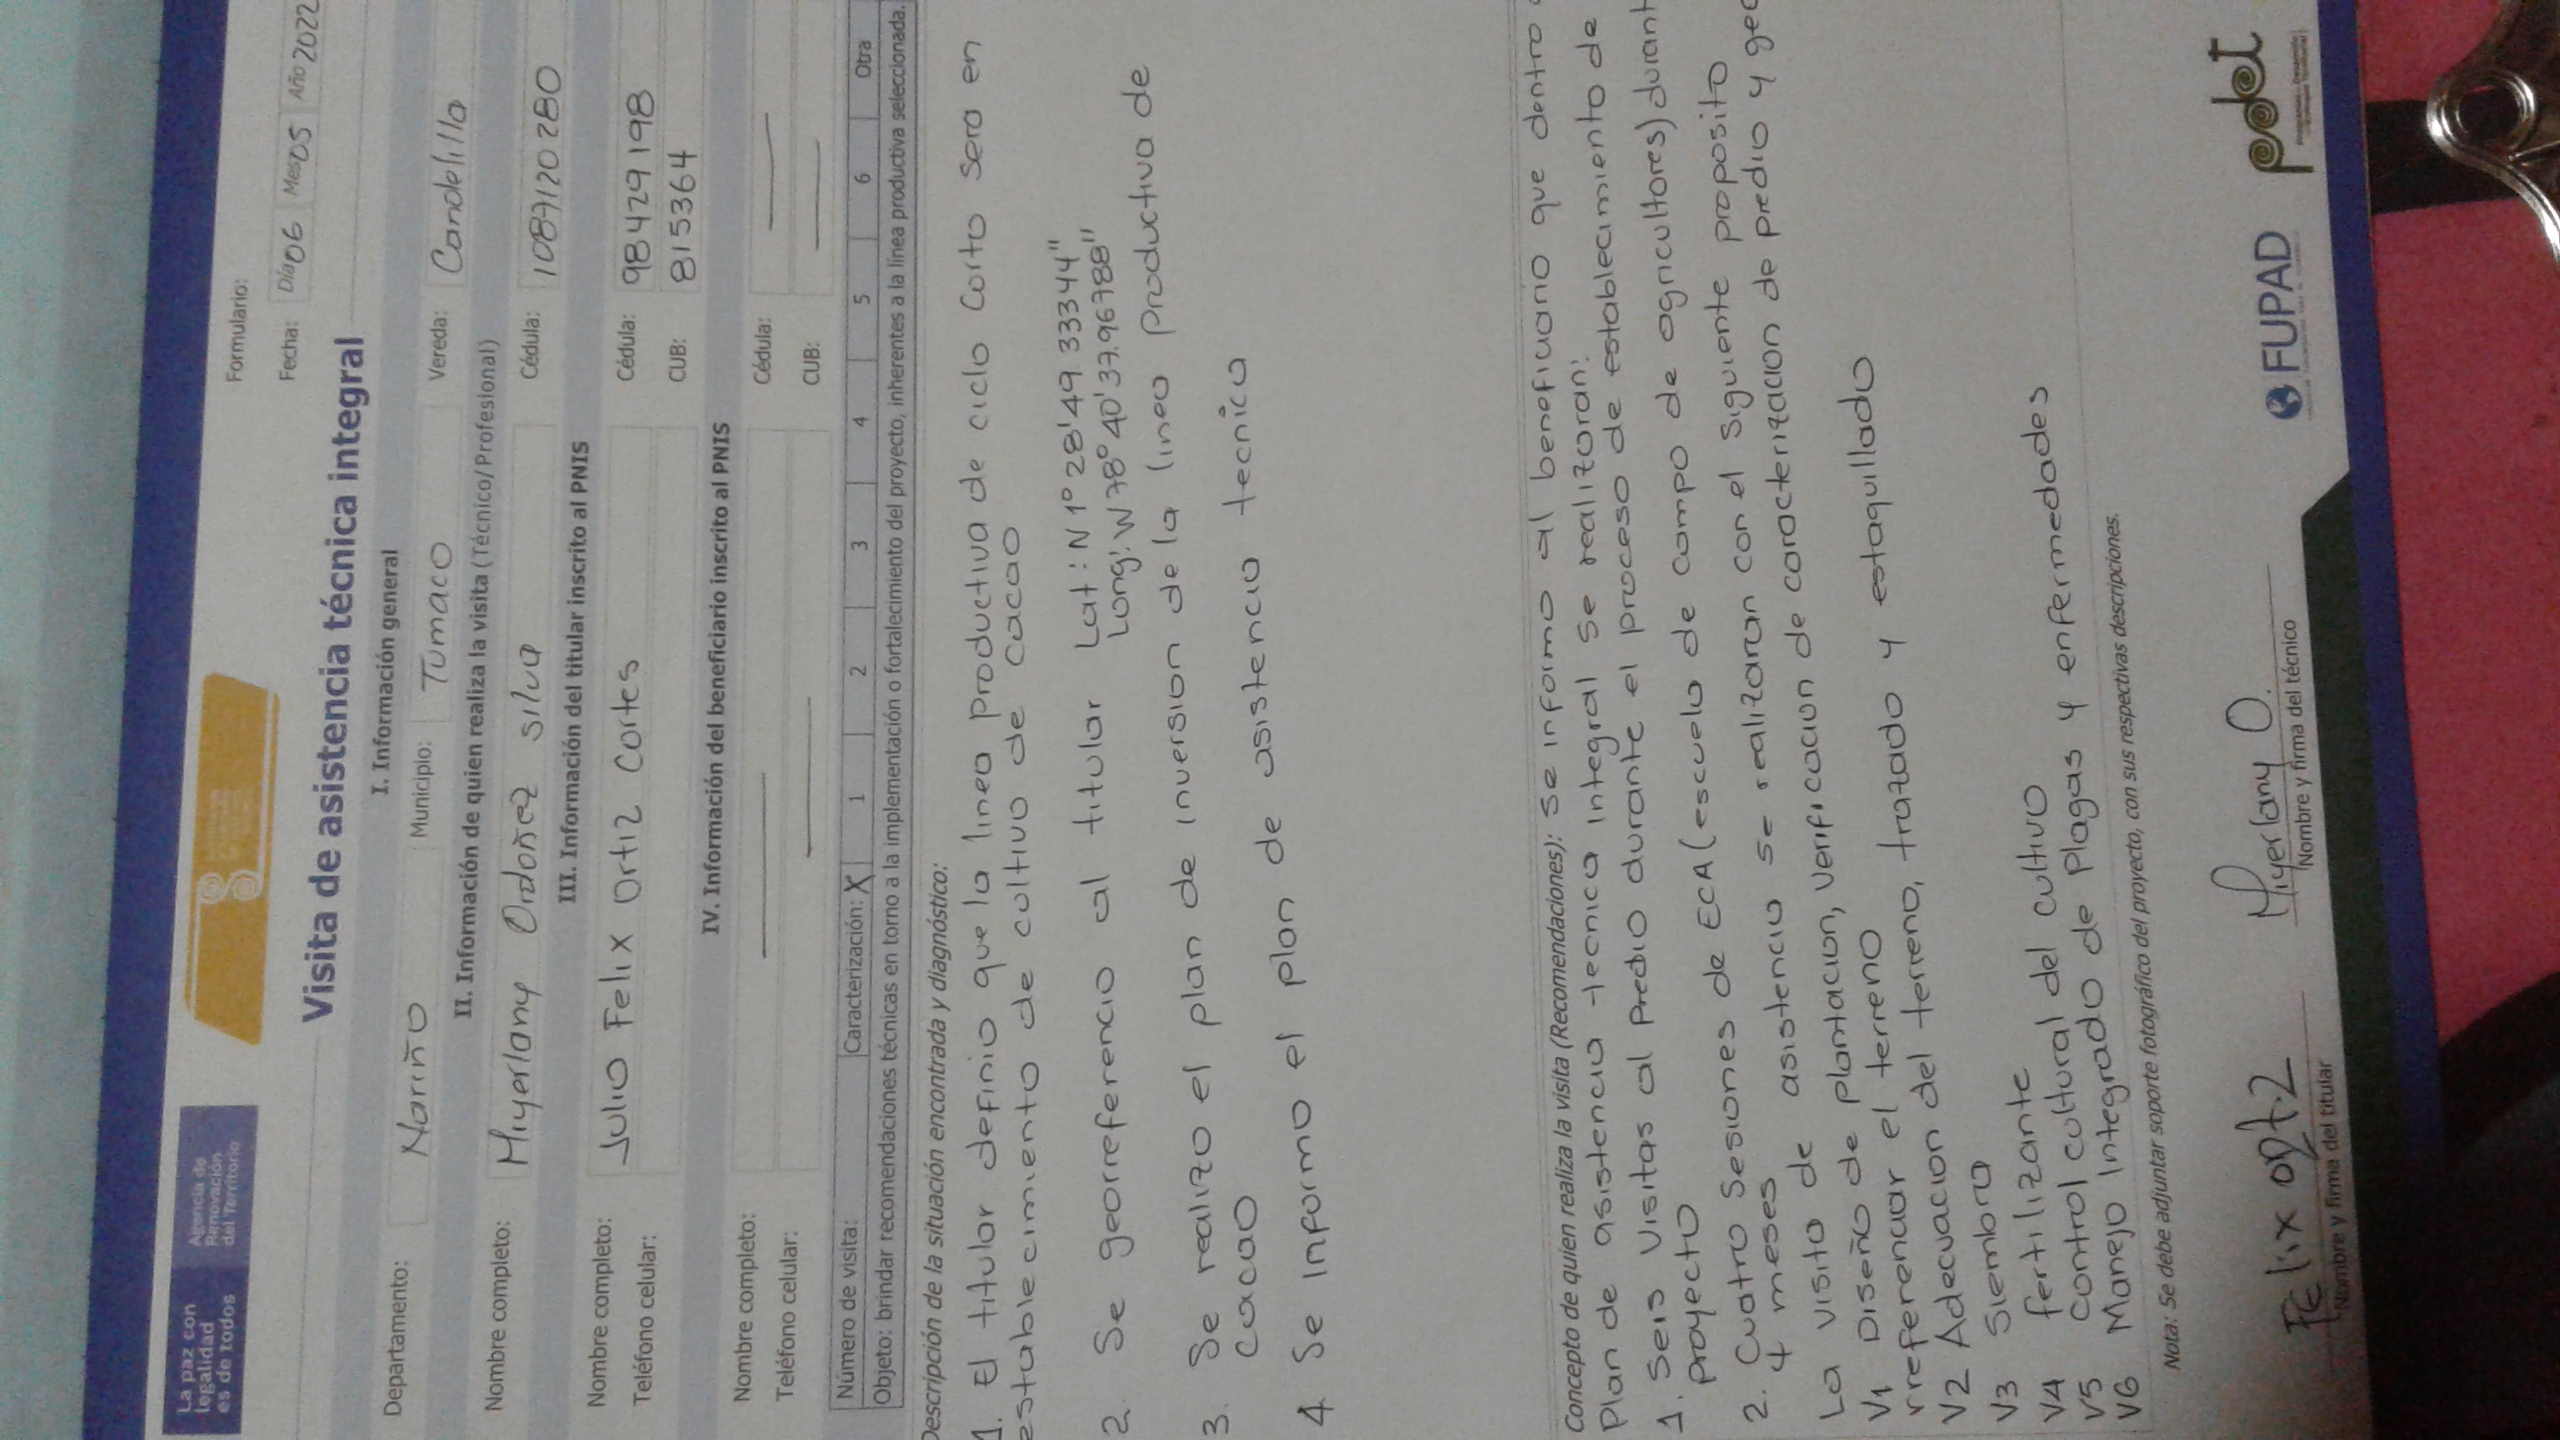 La paz con
legalidad
es de todos
Agencia de
Renovación
del Territorio
Formulario:
Visita de asistencia técnica integral
Fecha: Día 06 Mes 05 Año 2022
I. Información general
Departamento: Nariño Municipio: Tumaco Vereda: Candelillo
II. Información de quien realiza la visita (Técnico/Profesional)
Nombre completo: Miyerlany Ordoñez silva Cédula: 1087120280
III. Información del titular inscrito al PNIS
Nombre completo: Julio Felix Ortiz Cortes Cédula: 98429198
Teléfono celular: CUB: 8153364
IV. Información del beneficiario inscrito al PNIS
Nombre completo: Cédula:
Teléfono celular: CUB:
Número de visita: Caracterización: X 1 2 3 4 5 6 Otra
Objeto: brindar recomendaciones técnicas en torno a la implementación o fortalecimiento del proyecto, inherentes a la línea productiva seleccionada.
Descripción de la situación encontrada y diagnóstico:
1. El titular definio que la linea productiva de ciclo Corto sera en
establecimiento de cultivo de cacao
2. Se georreferencio al titular Lat: N 1° 28' 49.33344"
Long: W 78° 40' 37.96788"
3. Se realizo el plan de inversion de la linea Productiva de
cacao
4 Se informo el plan de asistencia tecnica
Concepto de quien realiza la visita (Recomendaciones): se informo al beneficiario que dentro
Plan de asistencia tecnica integral se realizaran:
1. Seis Visitas al Predio durante el proceso de establecimiento de
Proyecto
2. Cuatro Sesiones de ECA (escuela de campo de agricultores) durant
4 meses
La visita de asistencia se realizaran con el siguiente proposito
V1 Diseño de plantacion, verificacion de caracterizacion de predio y geo
rreferenciar el terreno
V2 Adecuacion del terreno, trazado y estaquillado
V3 Siembra
V4 fertilizante
V5 control cultural del cultivo
V6 Manejo Integrado de Plagas y enfermedades
Nota: Se debe adjuntar soporte fotográfico del proyecto, con sus respectivas descripciones.
Felix ortiz
Nombre y firma del titular
Miyerlany O.
Nombre y firma del técnico
FUPAD
pdet